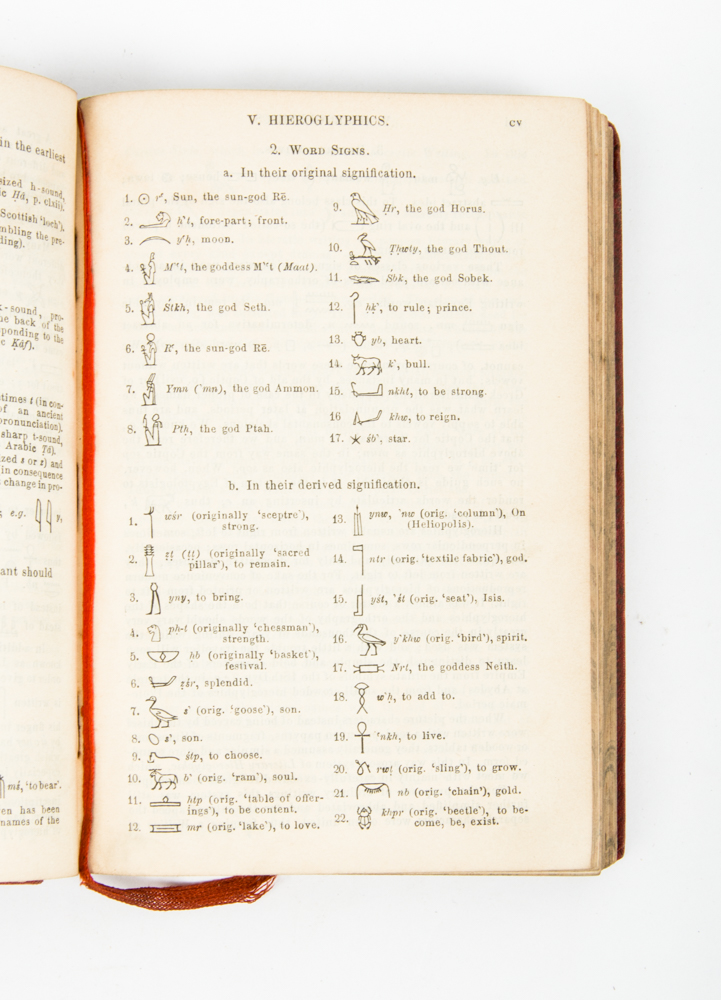 in the earliest
sized h-sound,
p. clxii).
Scottish 'loch').
mbling the pre-
ding).
k-sound, pro-
he back of the
ponding to the
c Ḳâf).
times t (in con-
of an ancient
pronunciation).
sharp t-sound,
Arabic Ṭâ).
zed s or z) and
in consequence
change in pro-
e.g. y,
ant should
mś, 'to bear'.
en has been
names of the
V. HIEROGLYPHICS. cv
2. WORD SIGNS.
a. In their original signification.
1. rʿ, Sun, the sun-god Rē.
2. ḥʾt, fore-part; front.
3. yʿḥ, moon.
4. Mʾʿt, the goddess Mʾʿt (Maat).
5. Śtkh, the god Seth.
6. Rʿ, the sun-god Rē.
7. Ymn (ʾmn), the god Ammon.
8. Ptḥ, the god Ptah.
9. Ḥr, the god Horus.
10. Ṭḥwty, the god Thout.
11. Śbk, the god Sobek.
12. ḥḳʾ, to rule; prince.
13. yb, heart.
14. kʾ, bull.
15. nkht, to be strong.
16 khw, to reign.
17. śbʾ, star.
b. In their derived signification.
1. wśr (originally 'sceptre'),
strong.
2. ṣṭ (ṭṭ) (originally 'sacred
pillar'), to remain.
3. yny, to bring.
4. pḥ-t (originally 'chessman'),
strength.
5. ḥb (originally 'basket'),
festival.
6. ẓśr, splendid.
7. zʾ (orig. 'goose'), son.
8. zʾ, son.
9. śtp, to choose.
10. bʾ (orig. 'ram'), soul.
11. ḥtp (orig. 'table of offer-
ings'), to be content.
12. mr (orig. 'lake'), to love.
13. ynw, ʾnw (orig. 'column'), On
(Heliopolis).
14. ntr (orig. 'textile fabric'), god.
15. yśt, ʾśt (orig. 'seat'), Isis.
16. yʾkhw (orig. 'bird'), spirit.
17. Nrt, the goddess Neith.
18. wʾḥ, to add to.
19. ʿnkh, to live.
20. rwṭ (orig. 'sling'), to grow.
21. nb (orig. 'chain'), gold.
22. khpr (orig. 'beetle'), to be-
come, be, exist.